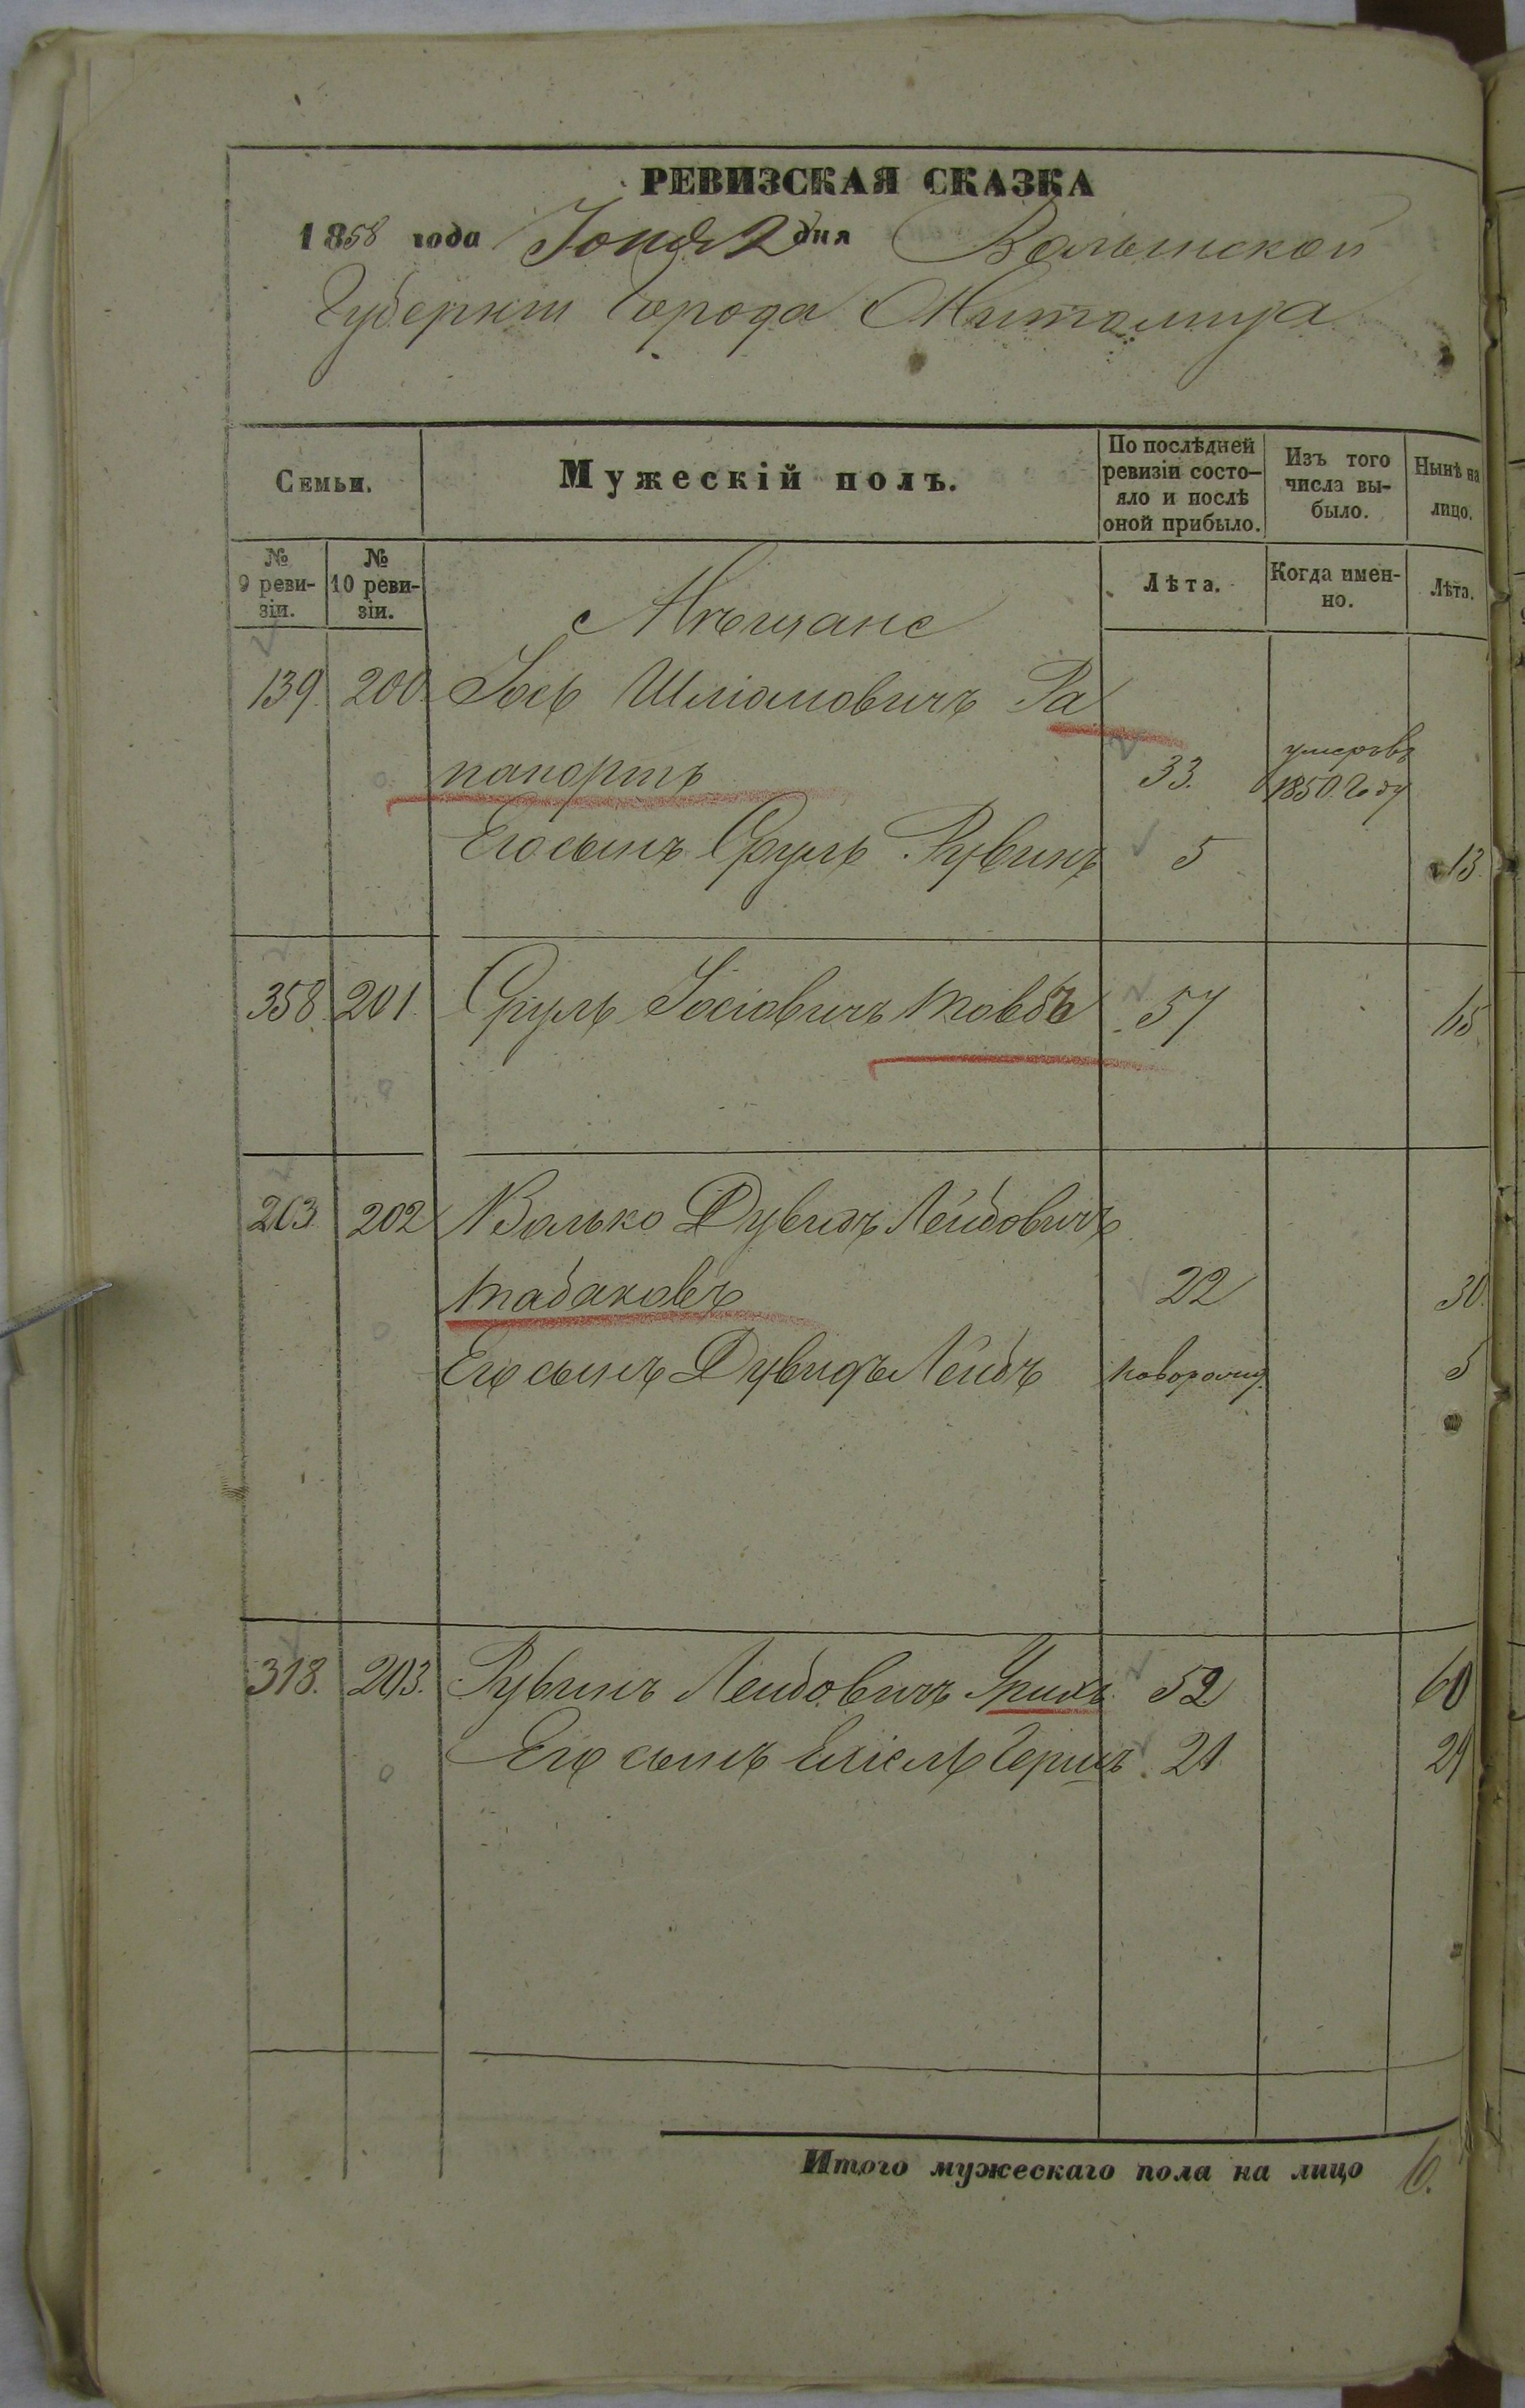 РЕВИЗСКАЯ СКАЗКА
1858 года Іюня 2 дня Волынской
Губерніи Города Житомира
Семьи.
Мужескій полъ.
По послѣдней ревизіи состо-яло и послѣ оной прибыло.
Изъ того числа вы-было.
Нынѣ на лицо.
№ 9 реви-зіи.
№ 10 реви-зіи.
Лѣта.
Когда имен-но.
Лѣта.
Мѣщане
139. 200. Іось Шліомовичъ Ра
папортъ 33. умеръ въ 1850 году
Его сынъ Сруль Рувинъ 5 13.
358. 201. Сруль Іосіовичъ 57 65
203. 202 Волько Дувидъ Лейбовичъ
Табаковъ 22 30.
Его сынъ Дувидъ Лейбъ новорожд. 5
318. 203. Рувинъ Лейбовичъ 52 60
Его сынъ Герш 21 29
Итого мужескаго пола на лицо 6.